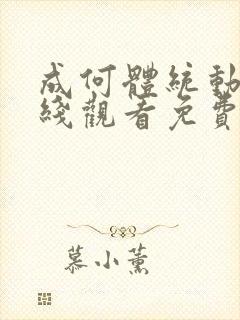 成何體統動
綫觀看免費
慕小薰